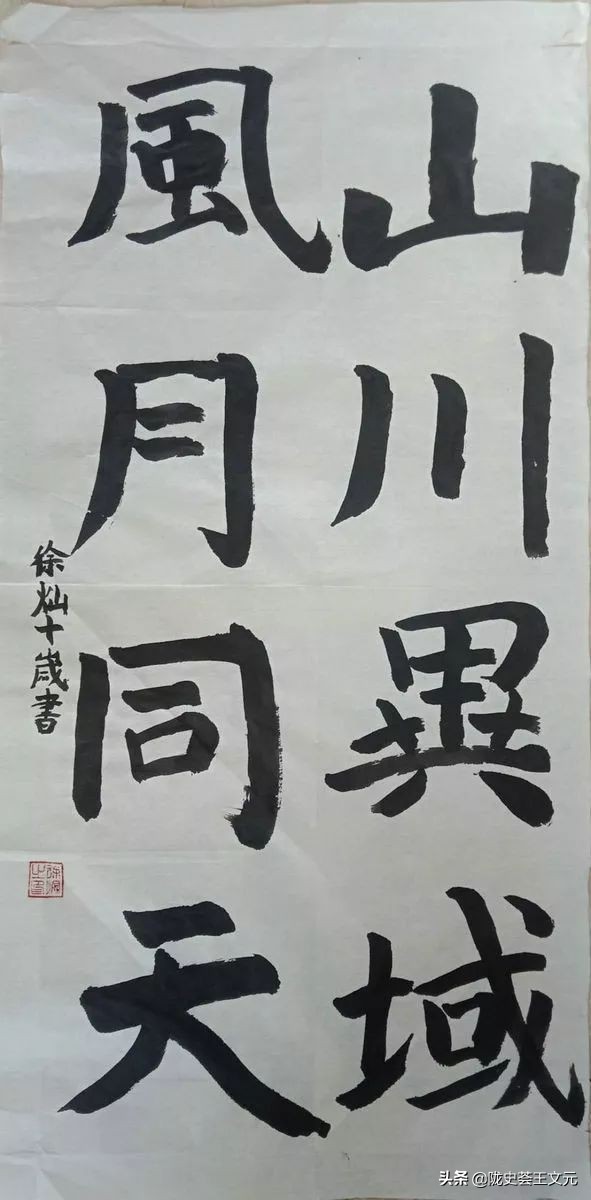 山川異域
風月同天
徐灿十歲書
头条 @陇史荟王文元